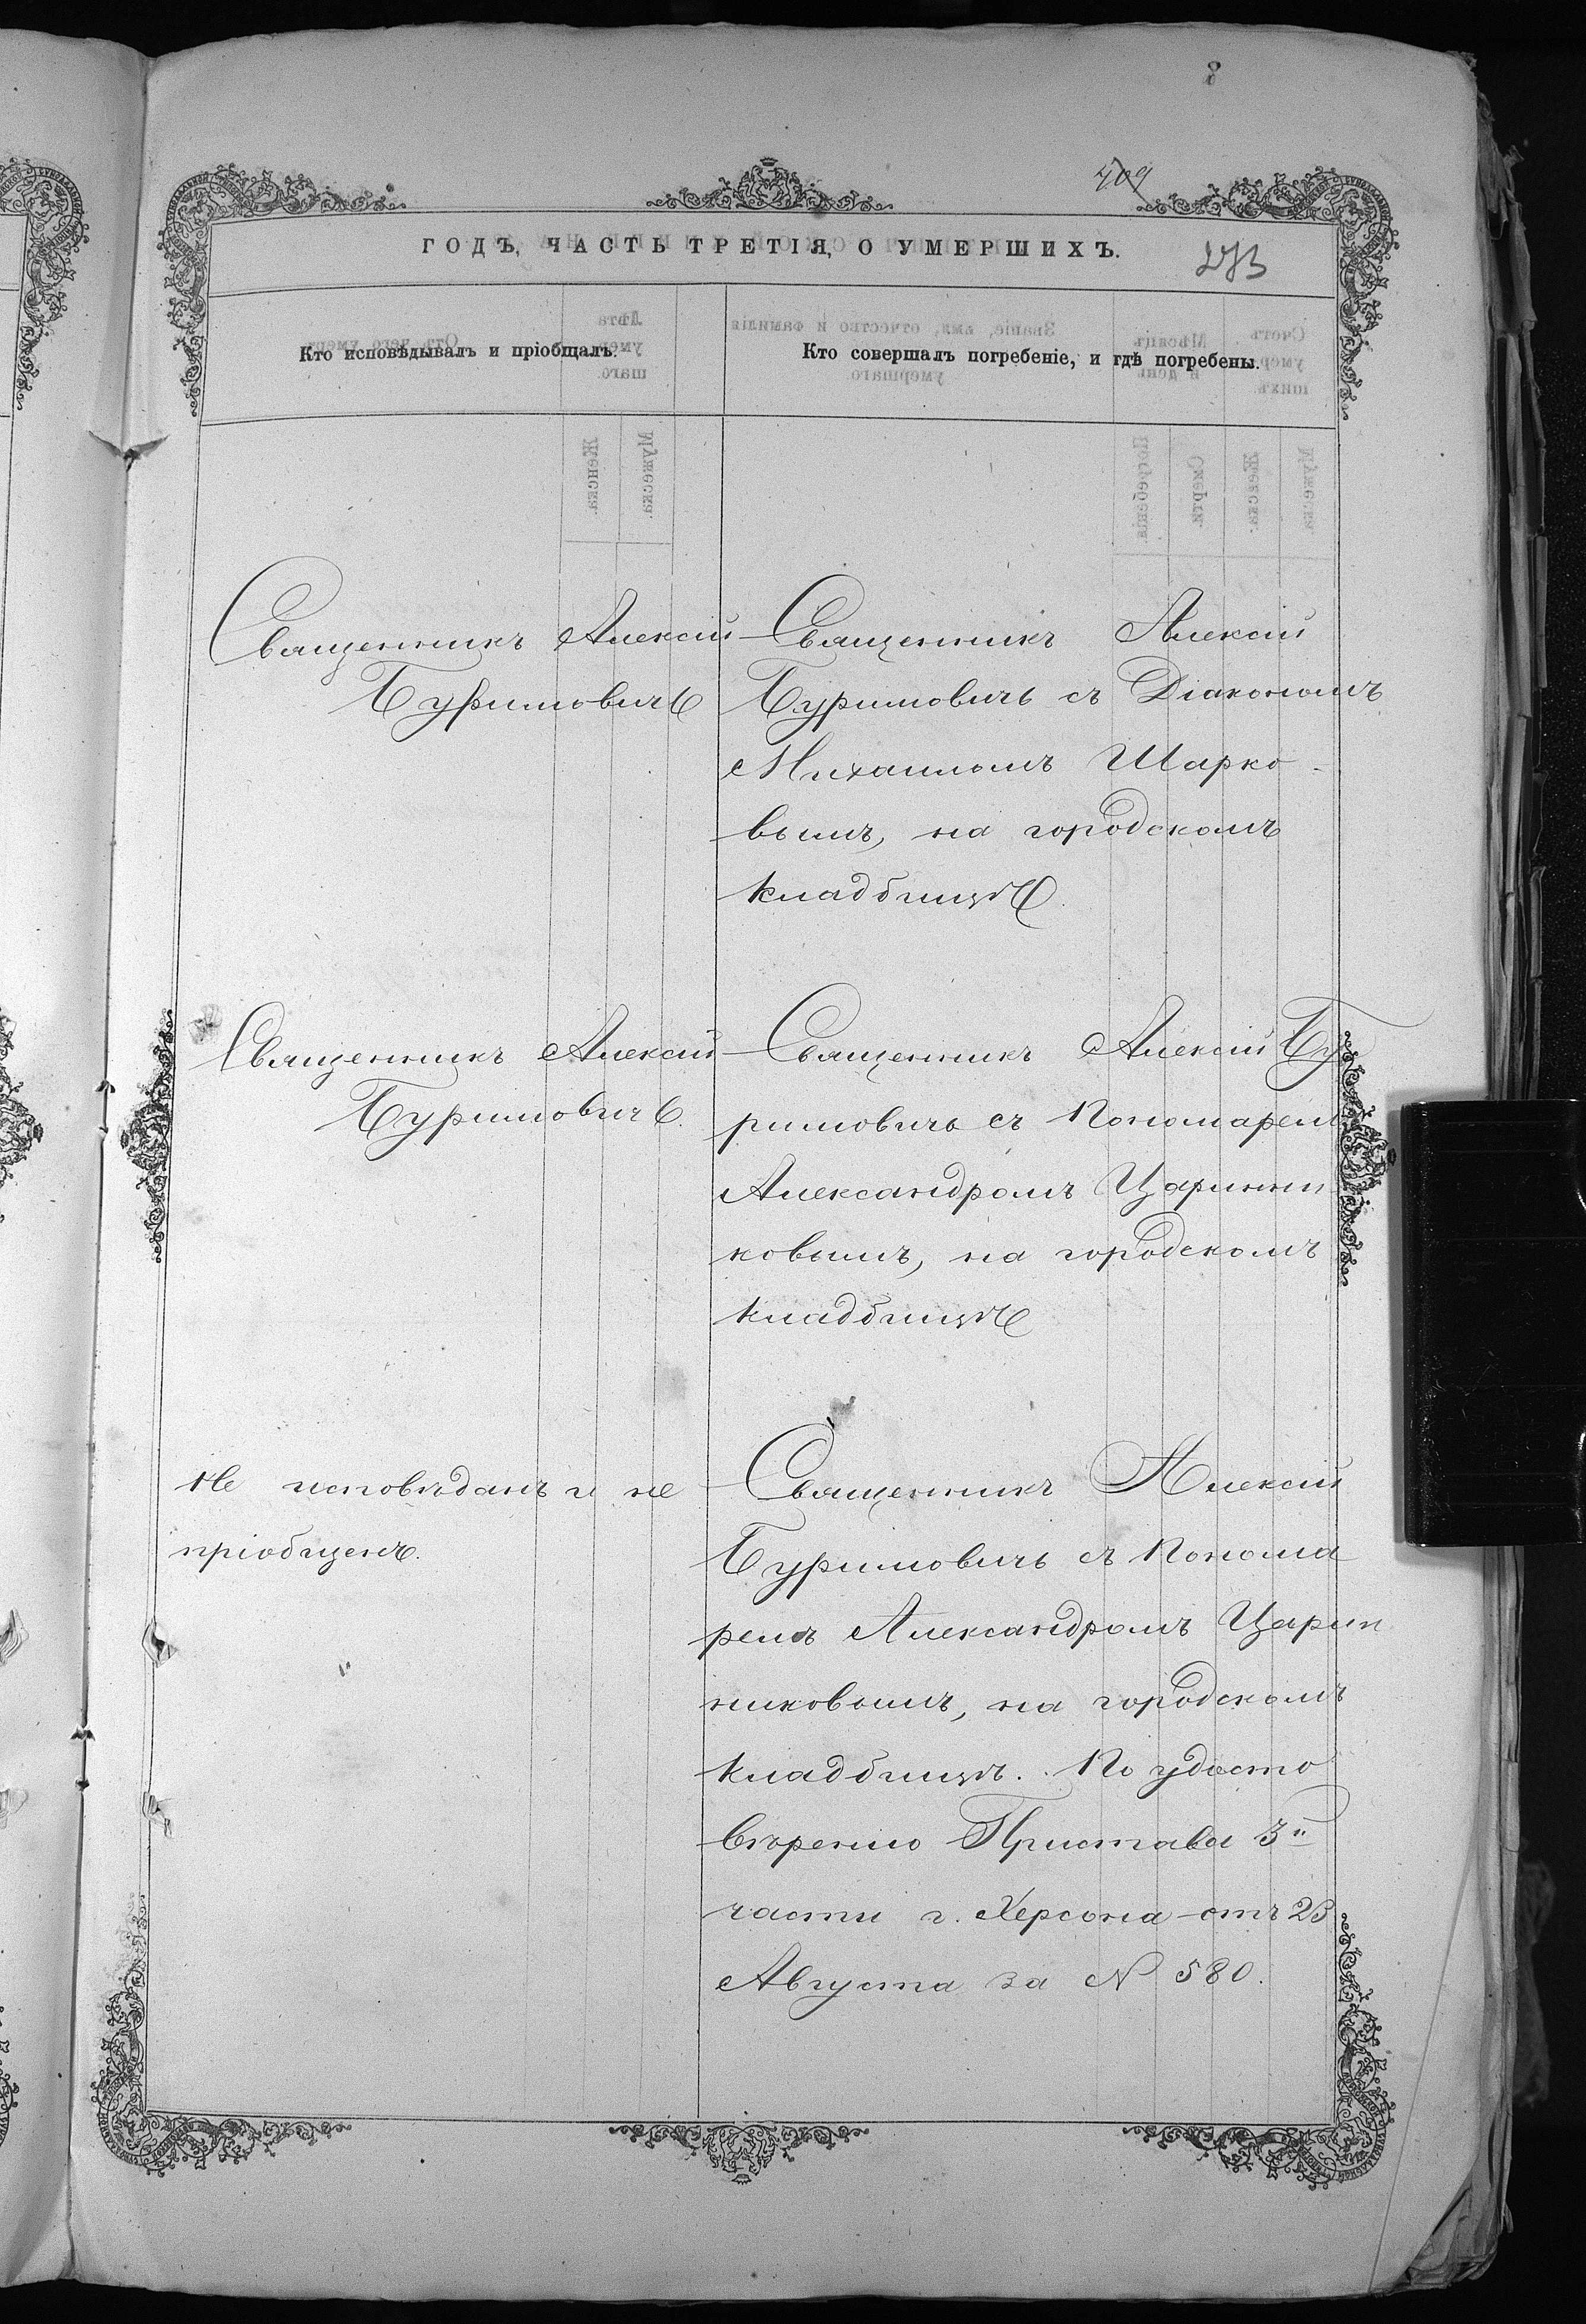 8
409
ГОДЪ, ЧАСТЬ ТРЕТІЯ, О УМЕРШИХЪ.
273
Кто исповѣдывалъ и пріобщалъ.
Кто совершалъ погребеніе, и гдѣ погребены.
Священникъ Алексій
Буримовичъ
Священникъ Алексій
Буримовичъ съ Діакономъ
Михаиломъ Шарко-
вымъ, на городскомъ
кладбищѣ.
Священникъ Алексій
Буримовичъ.
Священникъ Алексій Бу
римовичъ съ Пономаремъ
Александромъ Царинни
ковымъ, на городскомъ
кладбищѣ
Не исповѣданъ и не
пріобщенъ.
Священникъ Алексій
Буримовичъ съ Понома
ремъ Александромъ Царин
никовымъ, на городскомъ
кладбищѣ. По удосто
вѣренію Пристава 3й
части г. Херсона отъ 23
Августа за № 580.